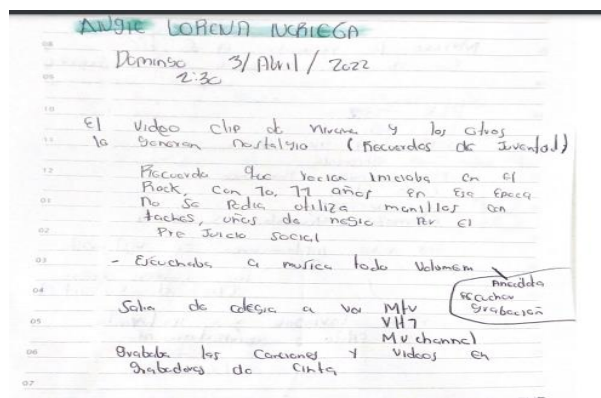 ANGIE LORENA NORIEGA
Domingo 3/Abril/2022
2:30
El Video clip de y los otros
la generan nostalgia (Recuerdos de Juventud)
Recuerda que recien iniciaba en el
Rock, con 10, 11 años en Esa Epoca
No se Podia utiliza manillas con
taches, uñas de negro Por El
Pre Juicio social
- Escuchaba a musica todo Volumem
Anecdota
Escuchar
grabación
Salia de colegio a ver Mtv
VH1
MV channel
Grababa las Canciones y Videos en
grabadoras de Cinta
08
09
10
11
12
01
02
03
04
05
06
07